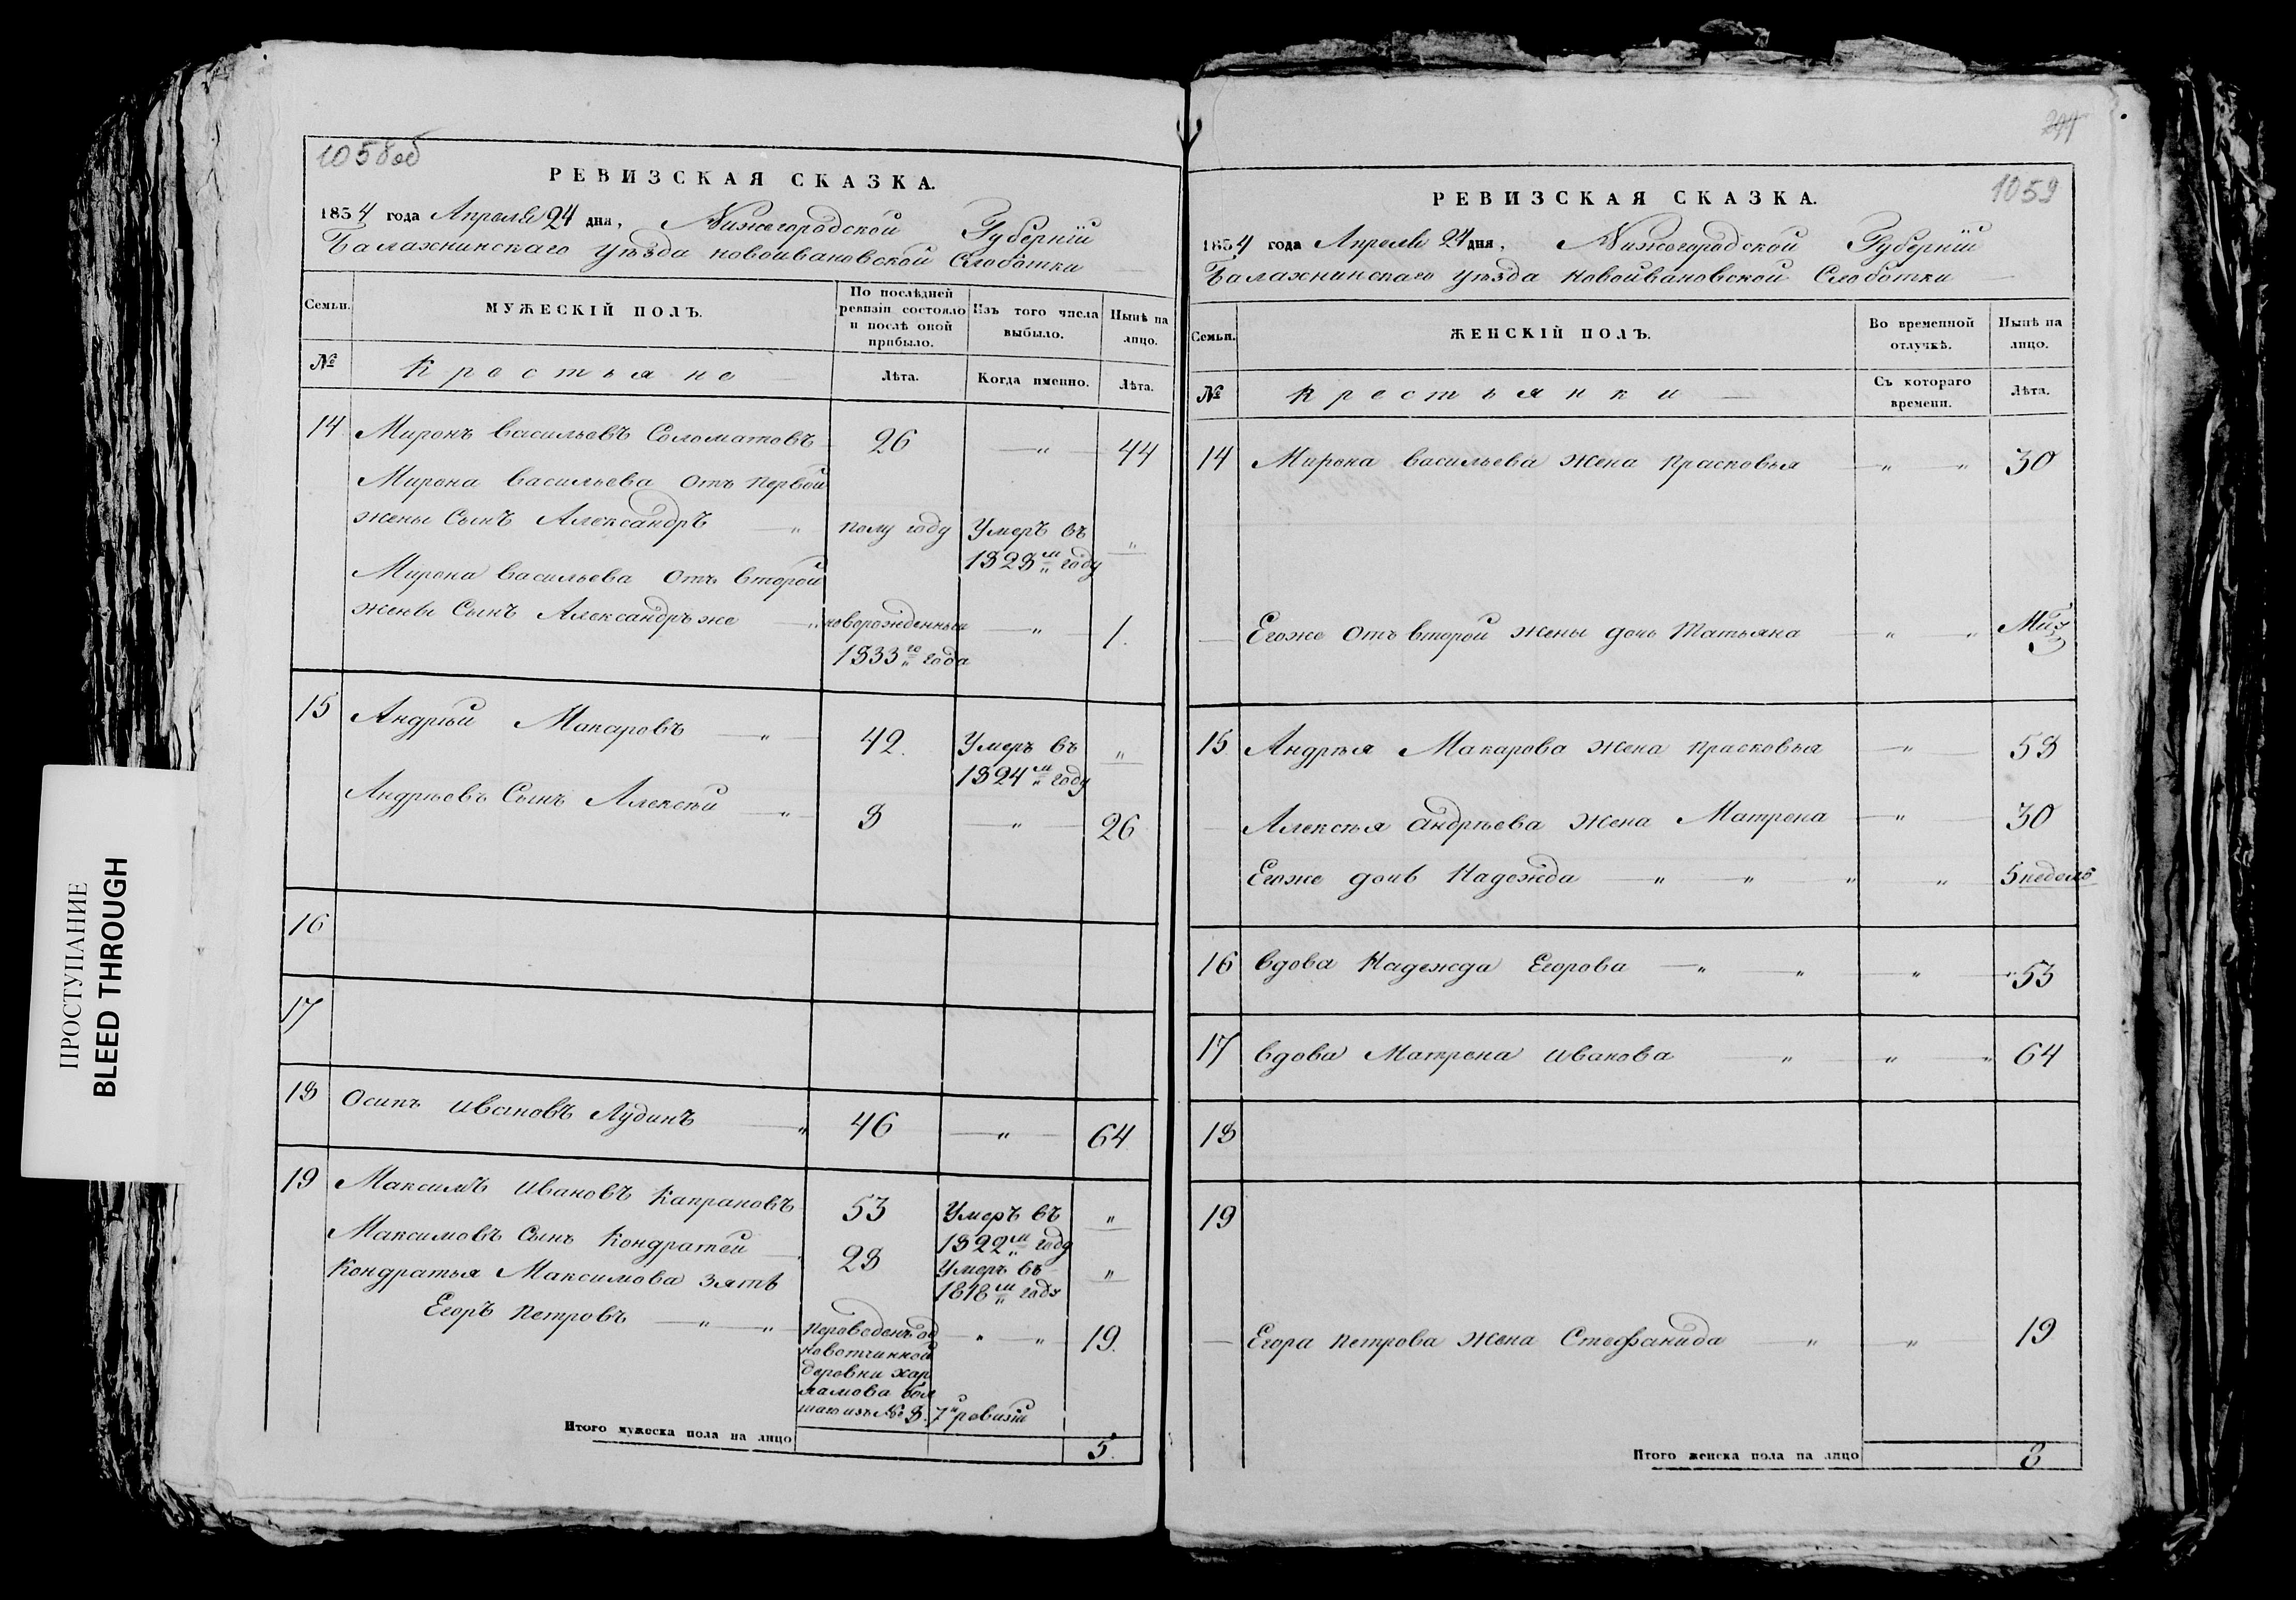 1058об
РЕВИЗСКАЯ СКАЗКА.
1834 года Апреля 24 дня, Нижегородской Губерніи
Балахнинскаго уѣзда новоивановской Слободки
Семьи.
МУЖЕСКІЙ ПОЛЪ.
По послѣдней ревизіи состояло и послѣ оной прибыло.
Изъ того числа выбыло.
Нынѣ на лицо.
№
Крестьяне
Лѣта.
Когда именно.
Лѣта.
14 Миронъ васильевъ Соломатовъ 26 — " — 44
Мирона васильева отъ первой
жены Сынъ Александръ — " полу году Умеръ въ "
1828м году
Мирона васильева отъ второй
жены Сынъ Александръ же — " новорожденный — " — 1.
1833го года
15 Андрѣй Макаровъ — " — 42. Умеръ въ "
1824м году
Андрѣевъ Сынъ Алексѣй — " 8 — " — 26
16
17
18 Осипъ ивановъ Лудинъ — " 46 — " — 64
19 Максимъ ивановъ Капрановъ 53 Умеръ въ "
1822м году
Максимовъ Сынъ Кондратей — 28 Умеръ въ "
1818м году
Кондратья Максимова зять
Егоръ петровъ — " — " — переведенъ од — " — " 19.
новотчинной
деревни хар
ламова
изъ № 8. 7й ревизіи
Итого мужеска пола на лицо 5.
1059
РЕВИЗСКАЯ СКАЗКА.
1834 года Апреля 24 дня, Нижегородской Губерніи
Балахнинскаго уѣзда новоивановской Слободки
Семьи.
ЖЕНСКІЙ ПОЛЪ.
Во временной отлучкѣ.
Нынѣ на лицо.
№
крестьянки
Съ котораго времени.
Лѣта.
14 Мирона васильева жена прасковья — " " 30
— Егоже отъ второй жены дочь Татьяна — " "
3
15 Андрѣя Макарова жена прасковья — " — 58
Алексѣя андрѣева жена Матрена — " — 30
Егоже дочь Надежда — " " " " 5 недель
16 вдова Надежда Егорова — " " " 53
17 вдова Матрена иванова " " " 64
18
19
— Егора петрова жена Стефанида " — " — 19
Итого женска пола на лицо 8
ПРОСТУПАНИЕ
BLEED THROUGH